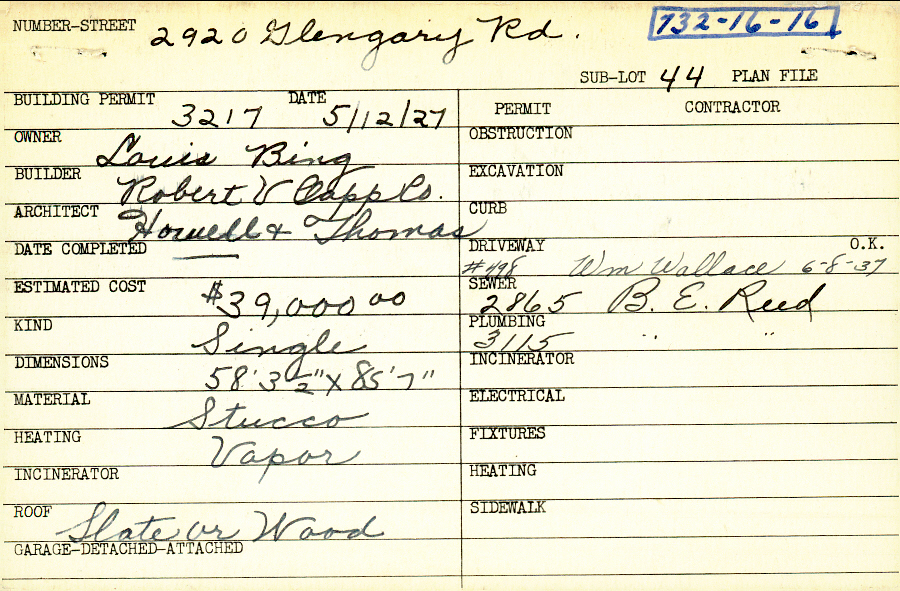 NUMBER-STREET 2920 Glengary Rd. 732-16-16
SUB-LOT 44 PLAN FILE
BUILDING PERMIT 3217 DATE 5/12/27
OWNER Louis Bing
BUILDER Robert V Clapp Co.
ARCHITECT Howell & Thomas
DATE COMPLETED
ESTIMATED COST $39,000 00
KIND Single
DIMENSIONS 58' 3 1/2" X 85' 7"
MATERIAL Stucco
HEATING Vapor
INCINERATOR
ROOF Slate or Wood
GARAGE-DETACHED-ATTACHED
PERMIT CONTRACTOR
OBSTRUCTION
EXCAVATION
CURB
DRIVEWAY O.K.
#498 Wm Wallace 6-8-37
SEWER
2865 B. E. Reed
PLUMBING
3115 " "
INCINERATOR
ELECTRICAL
FIXTURES
HEATING
SIDEWALK